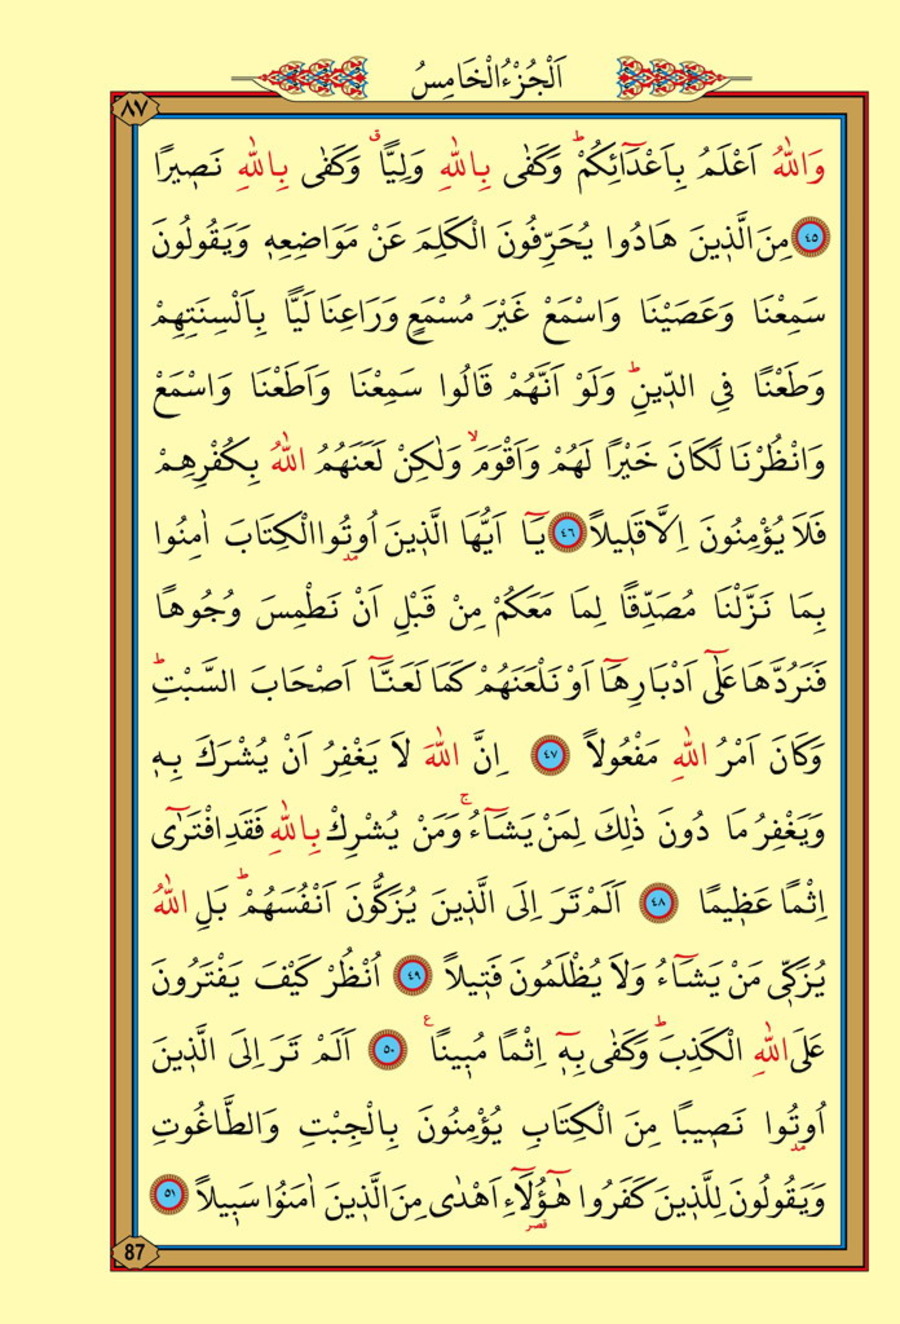 اَلْجُزْءُ الْخَامِسُ
٨٧
وَاللّٰهُ اَعْلَمُ بِاَعْدَٓائِكُمْۜ وَكَفٰى بِاللّٰهِ وَلِيًّاۗ وَكَفٰى بِاللّٰهِ نَص۪يرًا
﴿٤٥﴾ مِنَ الَّذ۪ينَ هَادُوا يُحَرِّفُونَ الْكَلِمَ عَنْ مَوَاضِعِه۪ وَيَقُولُونَ
سَمِعْنَا وَعَصَيْنَا وَاسْمَعْ غَيْرَ مُسْمَعٍ وَرَاعِنَا لَيًّا بِاَلْسِنَتِهِمْ
وَطَعْنًا فِي الدّ۪ينِۜ وَلَوْ اَنَّهُمْ قَالُوا سَمِعْنَا وَاَطَعْنَا وَاسْمَعْ
وَانْظُرْنَا لَكَانَ خَيْرًا لَهُمْ وَاَقْوَمَۙ وَلٰكِنْ لَعَنَهُمُ اللّٰهُ بِكُفْرِهِمْ
فَلَا يُؤْمِنُونَ اِلَّا قَل۪يلًا ﴿٤٦﴾ يَٓا اَيُّهَا الَّذ۪ينَ اُو۫تُوا الْكِتَابَ اٰمِنُوا
بِمَا نَزَّلْنَا مُصَدِّقًا لِمَا مَعَكُمْ مِنْ قَبْلِ اَنْ نَطْمِسَ وُجُوهًا
فَنَرُدَّهَا عَلٰٓى اَدْبَارِهَٓا اَوْ نَلْعَنَهُمْ كَمَا لَعَنَّٓا اَصْحَابَ السَّبْتِۜ
وَكَانَ اَمْرُ اللّٰهِ مَفْعُولًا ﴿٤٧﴾ اِنَّ اللّٰهَ لَا يَغْفِرُ اَنْ يُشْرَكَ بِه۪
وَيَغْفِرُ مَا دُونَ ذٰلِكَ لِمَنْ يَشَٓاءُۚ وَمَنْ يُشْرِكْ بِاللّٰهِ فَقَدِ افْتَرٰٓى
اِثْمًا عَظ۪يمًا ﴿٤٨﴾ اَلَمْ تَرَ اِلَى الَّذ۪ينَ يُزَكُّونَ اَنْفُسَهُمْۜ بَلِ اللّٰهُ
يُزَكّ۪ي مَنْ يَشَٓاءُ وَلَا يُظْلَمُونَ فَت۪يلًا ﴿٤٩﴾ اُنْظُرْ كَيْفَ يَفْتَرُونَ
عَلَى اللّٰهِ الْكَذِبَۜ وَكَفٰى بِه۪ٓ اِثْمًا مُب۪ينًا۟ ﴿٥٠﴾ اَلَمْ تَرَ اِلَى الَّذ۪ينَ
اُو۫تُوا نَص۪يبًا مِنَ الْكِتَابِ يُؤْمِنُونَ بِالْجِبْتِ وَالطَّاغُوتِ
وَيَقُولُونَ لِلَّذ۪ينَ كَفَرُوا هٰٓؤُ۬لَٓاءِ اَهْدٰى مِنَ الَّذ۪ينَ اٰمَنُوا سَب۪يلًا ﴿٥١﴾
87